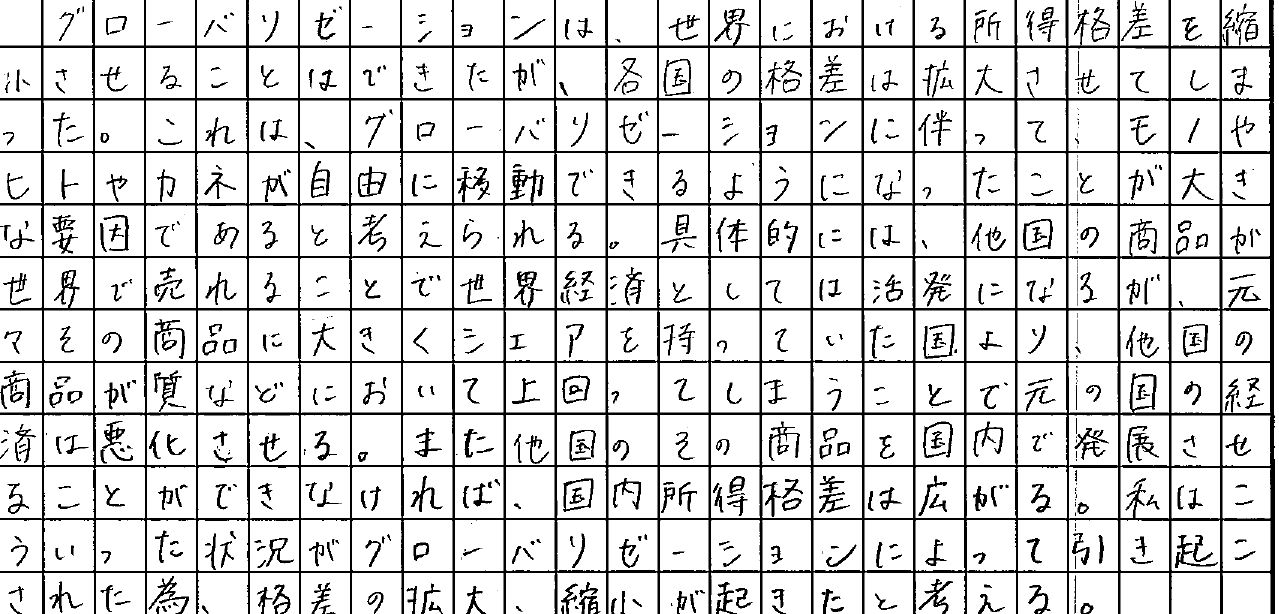 グローバリゼーションは、世界における所得格差を縮
小させることはできたが、各国の格差は拡大させてしま
った。これは、グローバリゼーションに伴って、モノや
ヒトやカネが自由に移動できるようになったことが大き
な要因であると考えられる。具体的には、他国の商品が
世界で売れることで世界経済としては活発になるが、元
々その商品に大きくシェアを持っていた国より、他国の
商品が質などにおいて上回ってしまうことで元の国の経
済は悪化させる。また他国のその商品を国内で発展させ
ることができなければ、国内所得格差は広がる。私はこ
ういった状況がグローバリゼーションによって引き起こ
された為、格差の拡大、縮小が起きたと考える。